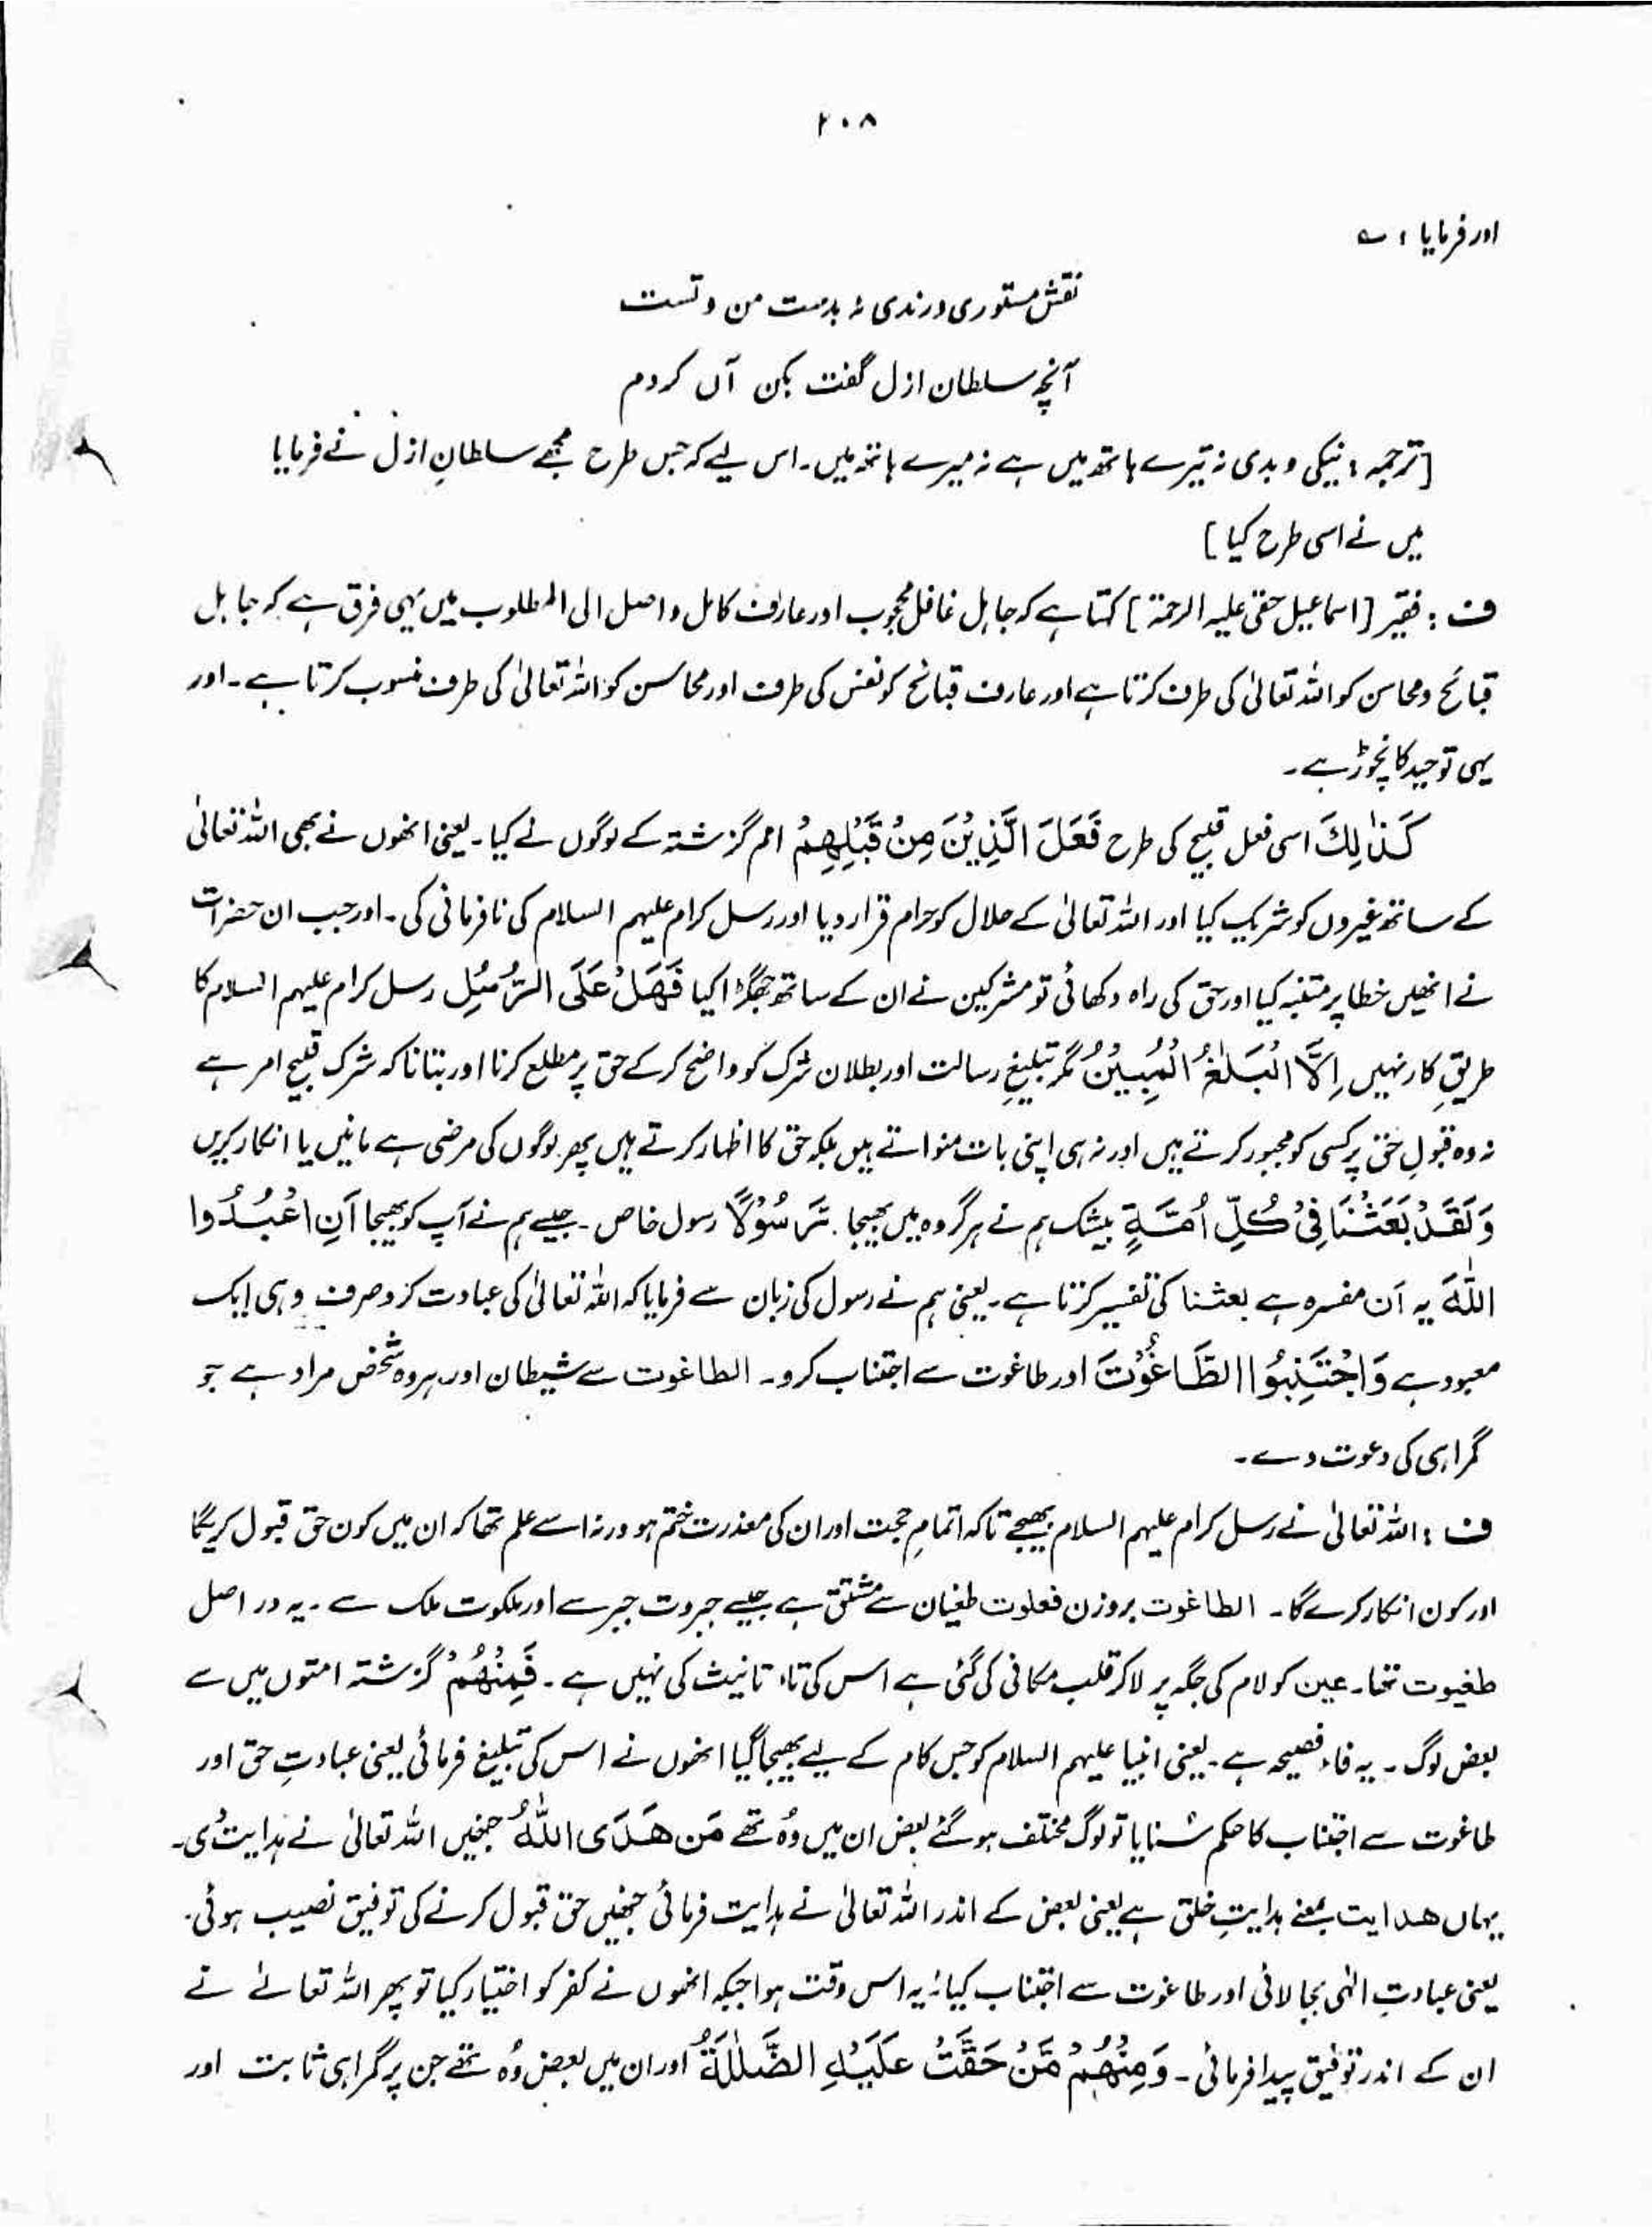 ۲۰۸
اور فرمایا : ؎
نقش مستوری و رندی نہ بدست من و تست
آنچہ سلطان ازل گفت بکن آں کردم
[ترجمہ : نیکی و بدی نہ تیرے ہاتھ میں ہے نہ میرے ہاتھ میں۔ اس لیے کہ جس طرح مجھے سلطانِ ازل نے فرمایا
میں نے اسی طرح کیا]
ف : فقیر [اسماعیل حقی علیہ الرحمۃ] کہتا ہے کہ جاہل غافل محجوب اور عارف کامل واصل الی المطلوب میں یہی فرق ہے کہ جاہل
قبائح و محاسن کو اللہ تعالیٰ کی طرف کرتا ہے اور عارف قبائح کو نفس کی طرف اور محاسن کو اللہ تعالیٰ کی طرف منسوب کرتا ہے۔ اور
یہی توحید کا نچوڑ ہے۔
كَذٰلِكَ اسی فعل قبیح کی طرح فَعَلَ الَّذِيْنَ مِنْ قَبْلِهِمْ امم گزشتہ کے لوگوں نے کیا۔ یعنی انھوں نے بھی اللہ تعالیٰ
کے ساتھ غیروں کو شریک کیا اور اللہ تعالیٰ کے حلال کو حرام قرار دیا اور رسل کرام علیہم السلام کی نافرمانی کی۔ اور جب ان حضرات
نے انھیں خطا پر متنبہ کیا اور حق کی راہ دکھائی تو مشرکین نے ان کے ساتھ جھگڑا کیا فَهَلْ عَلَى الرُّسُلِ رسل کرام علیہم السلام کا
طریقِ کار نہیں اِلَّا الْبَلٰغُ الْمُبِيْنُ مگر تبلیغِ رسالت اور بطلان شرک کو واضح کر کے حق پر مطلع کرنا اور بتانا کہ شرک قبیح امر ہے
نہ وہ قبولِ حق پر کسی کو مجبور کرتے ہیں اور نہ ہی اپنی بات منواتے ہیں بلکہ حق کا اظہار کرتے ہیں پھر لوگوں کی مرضی ہے مانیں یا انکار کریں
وَلَقَدْ بَعَثْنَا فِيْ كُلِّ اُمَّةٍ بیشک ہم نے ہر گروہ میں بھیجا۔ رَّسُوْلًا رسول خاص۔ جیسے ہم نے آپ کو بھیجا اَنِ اعْبُدُوا
اللّٰهَ یہ اَن مفسرہ ہے بعثنا کی تفسیر کرتا ہے۔ یعنی ہم نے رسول کی زبان سے فرمایا کہ اللہ تعالیٰ کی عبادت کرو صرف وہی ایک
معبود ہے وَاجْتَنِبُوا الطَّاغُوْتَ اور طاغوت سے اجتناب کرو۔ الطاغوت سے شیطان اور ہر وہ شخص مراد ہے جو
گمراہی کی دعوت دے۔
ف : اللہ تعالیٰ نے رسل کرام علیہم السلام بھیجے تاکہ اتمامِ حجت اور ان کی معذرت ختم ہو ورنہ اسے علم تھا کہ ان میں کون حق قبول کریگا
اور کون انکار کرے گا۔ الطاغوت بروزن فعلوت طغیان سے مشتق ہے جیسے جبروت جبر سے اور ملکوت ملک سے۔ یہ در اصل
طغیوت تھا۔ عین کو لام کی جگہ پر لا کر قلب مکانی کی گئی ہے اس کی تاء تانیث کی نہیں ہے۔ فَمِنْهُمْ گزشتہ امتوں میں سے
بعض لوگ۔ یہ فاء فصیحہ ہے۔ یعنی انبیا علیہم السلام کو جس کام کے لیے بھیجا گیا انھوں نے اس کی تبلیغ فرمائی یعنی عبادتِ حق اور
طاغوت سے اجتناب کا حکم سُنایا تو لوگ مختلف ہو گئے بعض ان میں وُہ تھے مَن هَدَى اللّٰهُ جنھیں اللہ تعالیٰ نے ہدایت دی۔
یہاں ھدایت بمعنے ہدایتِ خلق ہے یعنی بعض کے اندر اللہ تعالیٰ نے ہدایت فرمائی جنھیں حق قبول کرنے کی توفیق نصیب ہوئی۔
یعنی عبادتِ الٰہی بجا لائی اور طاغوت سے اجتناب کیا، یہ اس وقت ہوا جبکہ انھوں نے کفر کو اختیار کیا تو پھر اللہ تعالےٰ نے
ان کے اندر توفیق پیدا فرمائی۔ وَمِنْهُمْ مَّنْ حَقَّتْ عَلَيْهِ الضَّلٰلَةُ اور ان میں بعض وُہ تھے جن پر گمراہی ثابت اور